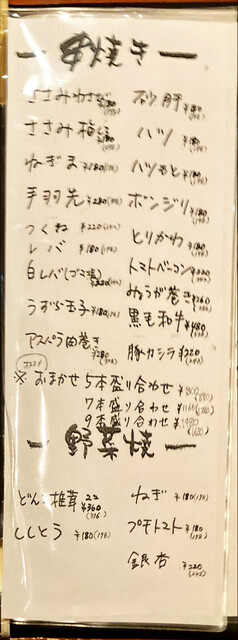 串焼き
ささみわさび ¥180(198)
ささみ梅しそ ¥180(198)
ねぎま ¥180(198)
手羽先 ¥280(308)
つくね ¥220(242)
レバ ¥180(198)
白レバ(ゴマ油)
うずら玉子 ¥180(198)
アスパラ肉巻き ¥280(308)
砂肝 ¥180(198)
ハツ ¥180(198)
ハツもと ¥180(198)
ボンジリ ¥180(198)
とりかわ ¥180(198)
トマトベーコン ¥220(242)
みょうが巻き ¥260
黒毛和牛 ¥480
豚カシラ ¥220(242)
オススメ
※おまかせ 5本盛り合わせ ¥800(880)
7本盛り合わせ
9本盛り合わせ ¥1480
野菜焼
どんこ椎茸 2コ ¥360(396)
ししとう ¥180(198)
ねぎ ¥180(198)
プチトマト ¥180(198)
銀杏 ¥220(242)